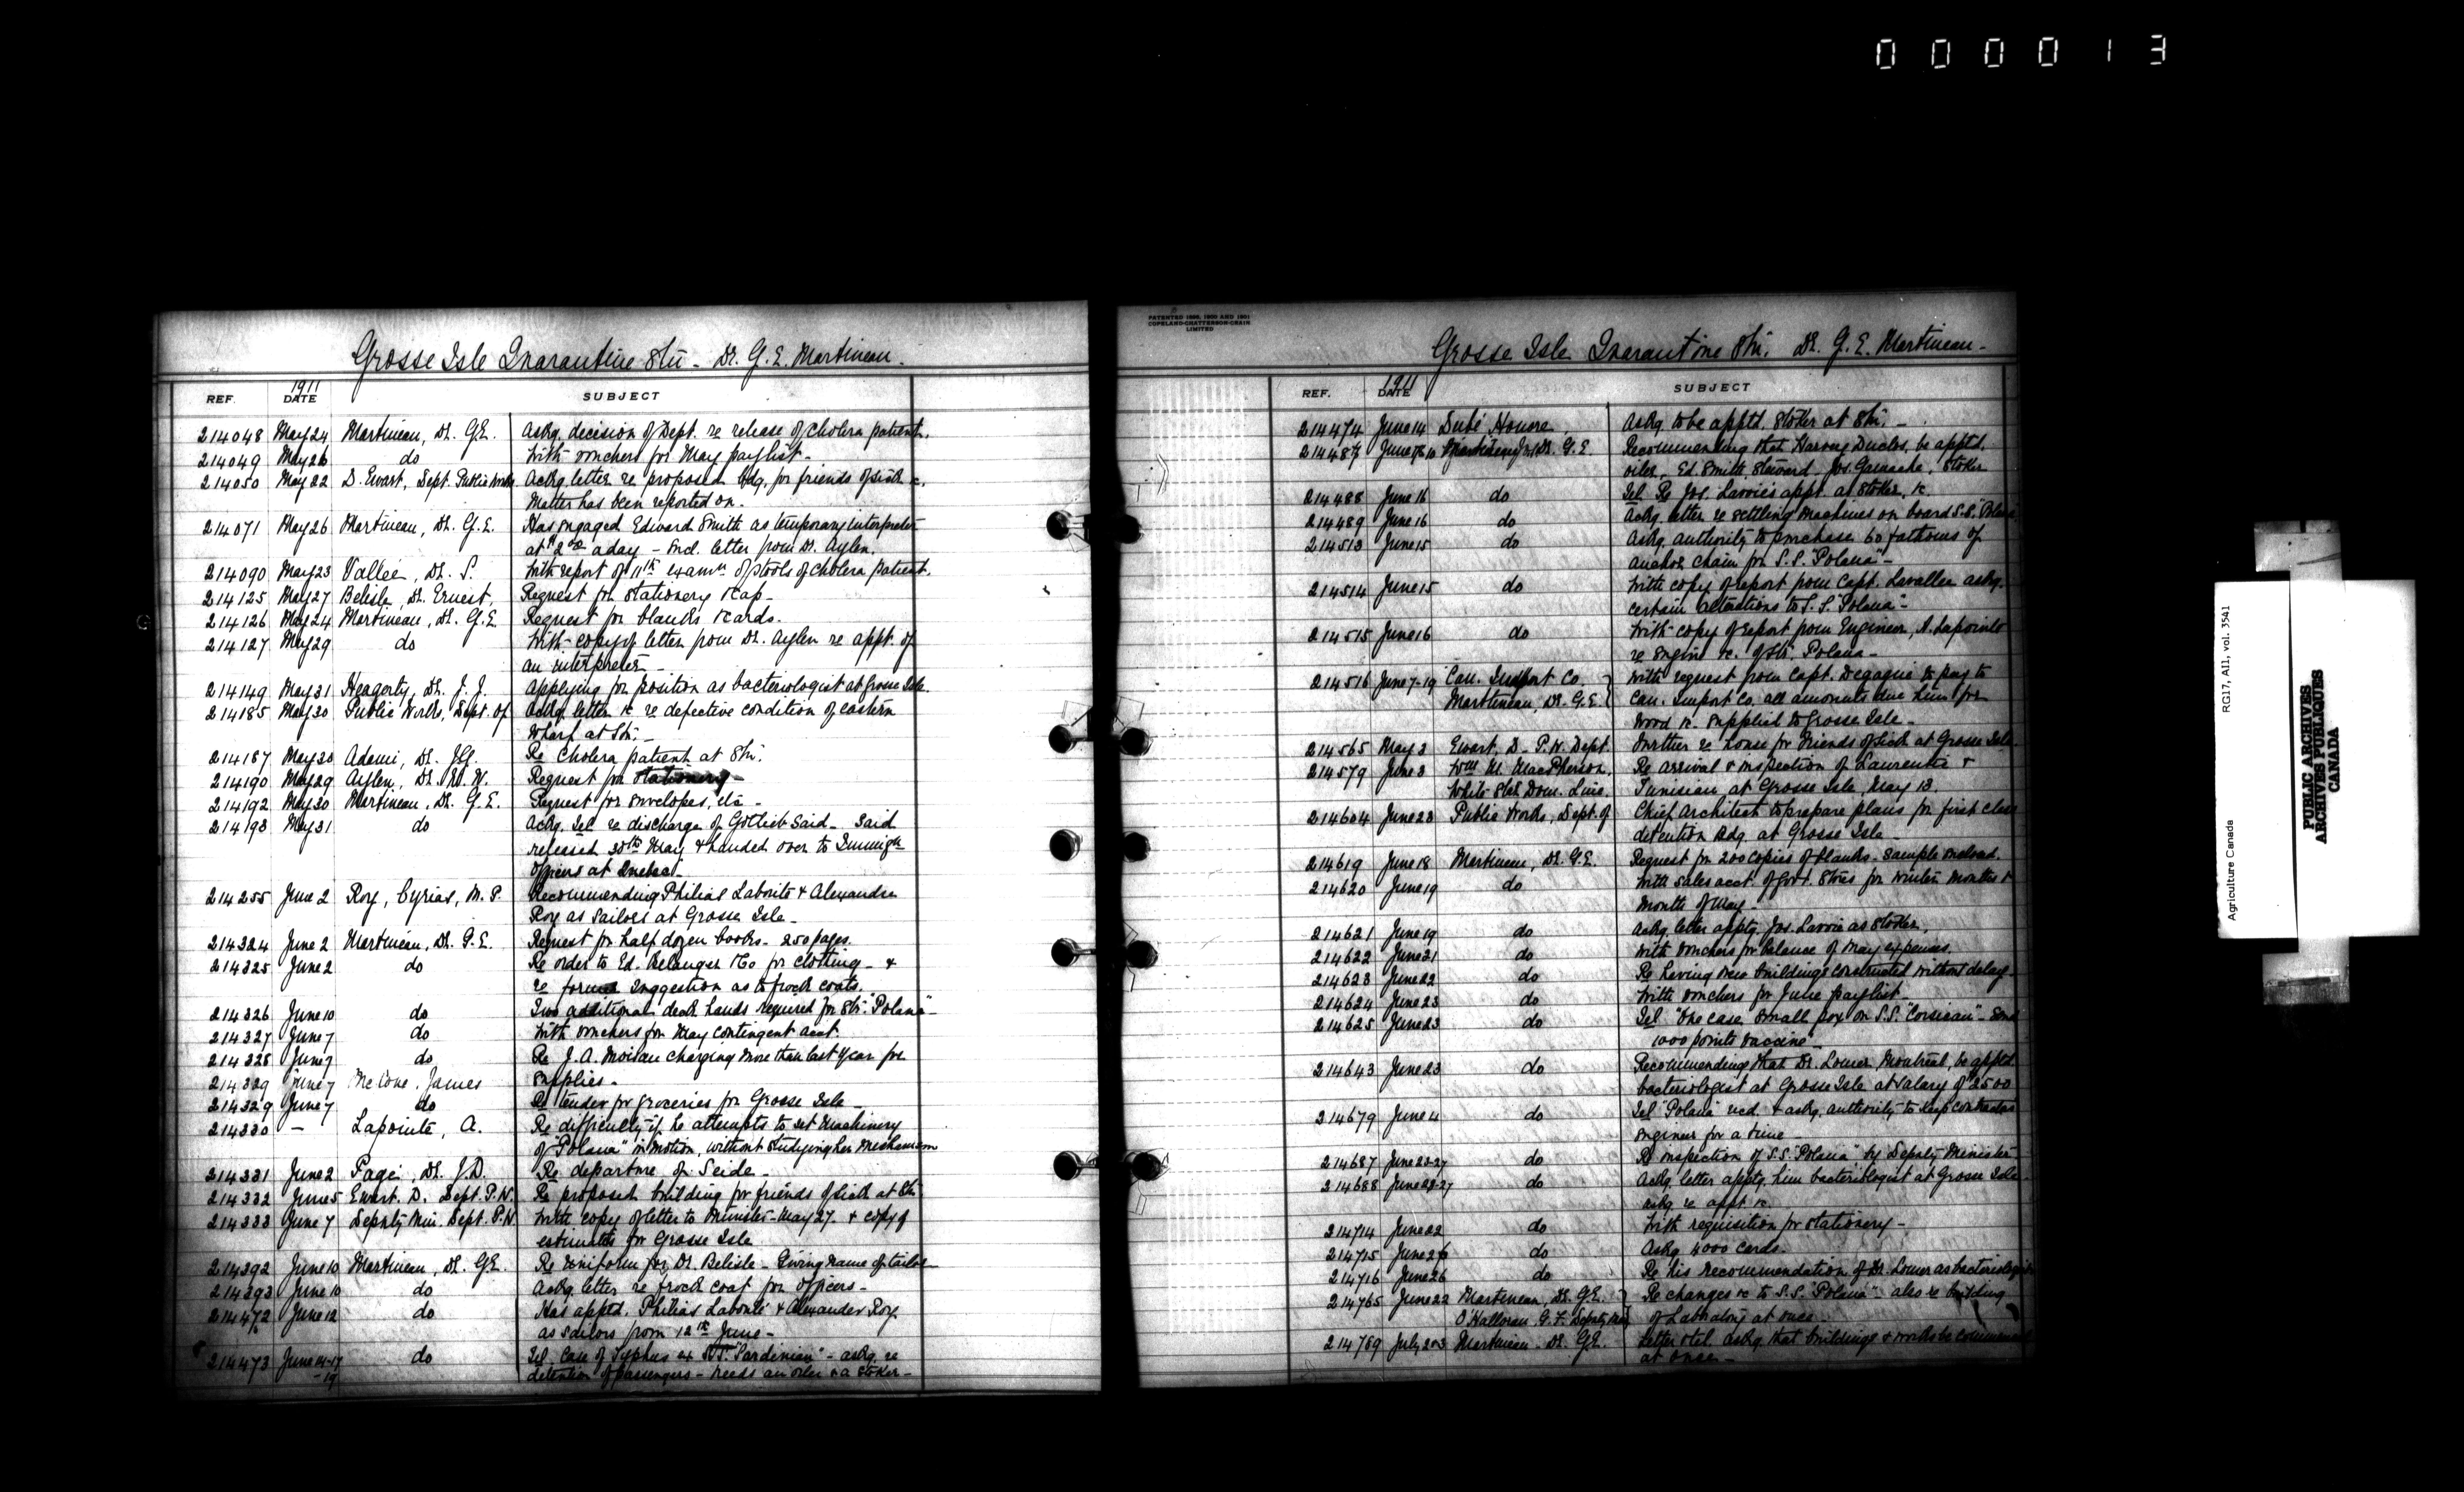 000013
Grosse Isle Quarantine Stn - Dr. G. E. Martineau.
REF. 1911 DATE SUBJECT
214048 May 24 Martineau, Dr. G.E. Askg. decision of Dept. re release of cholera patient.
214049 May 26 do With vouchers for May paylist -
214050 May 22 D. Ewart, Dept. Public Works Ackg. letter re proposed bdg. for friends of sick &c.
Matter has been reported on.
214071 May 26 Martineau, Dr. G.E. Has engaged Edward Smith as temporary interpreter
at $2 00 a day - Encl. letter from Dr. Aylen.
214090 May 23 Vallée, Dr. S. With report of 11th examn of stools of cholera patient.
214125 May 27 Belisle, Dr. Ernest, Request for stationery & cap -
214126 May 24 Martineau, Dr. G.E. Request for blanks & cards.
214127 May 29 do With copy of letter from Dr. Aylen re appt. of
an interpreter -
214149 May 31 Heagerty, Dr. J. J. Applying for position as bacteriologist at Grosse Isle.
214185 May 30 Public Works, Dept. of Ackg. letter &c re defective condition of eastern
Wharf at Stn. -
214187 May 30 Adami, Dr. Re Cholera patient at Stn.
214190 May 29 Aylen, Dr. W. Request for stationery -
214192 May 30 Martineau, Dr. G.E. Request for envelopes, etc -
214193 May 31 do Ackg. Tel. re discharge of Gottlieb Said - Said
released 30th May & handed over to Immign
Officers at Quebec.
214255 June 2 Roy, Cyrias, M.P. Recommending Philias Labonté & Alexandre
Roy as sailors at Grosse Isle -
214324 June 2 Martineau, Dr. G.E. Request for half dozen books - 250 pages.
214325 June 2 do Re order to Ed. Belanger & Co for clothing - &
re former suggestion as to frock coats.
214326 June 10 do Two additional deck hands required for Str. "Polana" -
214327 June 7 do With vouchers for May contingent acct.
214328 June 7 do Re J. A. Moisan charging more than last year for
supplies -
214329 June 7 McCone, James
214329 June 7 do Re tender for groceries for Grosse Isle -
214330 - Lapointe, A. Re difficulty if he attempts to set machinery
of "Polana" in motion, without studying her mechanism
214331 June 2 Pagé, Dr. J.D. Re departure of Seide -
214332 June 5 Ewart, D. Dept. P.W. Re proposed building for friends of sick at Stn
214333 June 7 Deputy Min. Dept. P.W. With copy of letter to Minister - May 27. & copy of
estimates for Grosse Isle
214392 June 10 Martineau, Dr. G.E. Re uniform for Dr. Belisle - Giving name of tailor -
214393 June 10 do Ackg. letter re frock coat for officers -
214472 June 12 do Has apptd. Philias Labonté & Alexander Roy
as sailors from 12th June -
214473 June 14-17-19 do Tel. Case of Typhus ex S.S. "Sardinian" - askg. re
detention of passengers - needs an oiler & a stoker -
PATENTED 1898, 1900 AND 1901
COPELAND-CHATTERSON-CRAIN
LIMITED
Grosse Isle Quarantine Stn. Dr. G. E. Martineau -
REF. 1911 DATE SUBJECT
214474 June 14 Dubé Honoré, Askg. to be apptd. Stoker at Stn. -
214487 June Martineau, Dr. G.E. Recommending that Harvey Duclos, be apptd.
oiler, Ed. Smith Steward Jos. Gamache, Stoker
214488 June 16 do Tel. Re Jos. Lavoie's appt. as Stoker, &c.
214489 June 16 do Ackg. letter re settling machines on board S.S. "Polana
214513 June 15 do Askg. authority to purchase 60 fathoms of
anchor chain for S.S. "Polana" -
214514 June 15 do With copy of report from Capt. Lavallée askg.
certain alterations to S.S. "Polana" -
214515 June 16 do With copy of report from Engineer, A. Lapointe
re engine &c. of Str Polana -
214516 June 7-19 Can. Import Co. With request from Capt. Degagné to pay to
Martineau, Dr. G.E. Can. Import Co. all amounts due him for
wood &c. supplied to Grosse Isle -
214565 May 3 Ewart, D. P.W. Dept. Further re house for Friends of sick at Grosse Isle
214579 June 3 Wm M. MacPherson, Re arrival & inspection of Laurentic &
White Star Dom. Line. Tunisian at Grosse Isle, May 13.
214604 June 23 Public Works, Dept. of Chief Architect to prepare plans for first class
detention bdg. at Grosse Isle -
214619 June 18 Martineau, Dr. G.E. Request for 200 copies of blanks - sample enclosed.
214620 June 19 do With sales acct. of Govt. Stores for winter months &
month of May -
214621 June 19 do Ackg. letter apptg. Jos. Lavoie as Stoker,
214622 June 21 do With vouchers for balance of May expenses.
214623 June 22 do Re having new buildings constructed without delay -
214624 June 23 do With vouchers for June paylist -
214625 June 23 do Tel "One case, small pox on S.S. "Corsican" - Send
1000 points vaccine" -
214643 June 23 do Recommending that Dr. Lomer, Montreal, be apptd
bacteriologist at Grosse Isle at salary of $2500
214679 June 4 do Tel "Polana" recd. & askg. authority to keep contractors
engineer for a time -
214687 June 23-27 do Re inspection of S.S. "Polana" by Deputy Minister -
214688 June 22-27 do Ackg. letter apptg. him bacteriologist at Grosse Isle -
askg. re appt. &c.
214714 June 22 do With requisition for stationery -
214715 June 26 do Askg. 4000 cards.
214716 June 26 do Re his recommendation of Dr. Lomer as bacteriologist
214765 June 22 Martineau, Dr. G.E. Re changes &c to S.S. "Polana" also re building
O'Halloran, G. F. Deputy Min of Laboratory at once
214769 July 2 & 3 Martineau, Dr. G.E. Letter & tel. askg. that buildings & works be commenced
at once -
Agriculture Canada RG17, A11, vol. 3541
PUBLIC ARCHIVES
ARCHIVES PUBLIQUES
CANADA